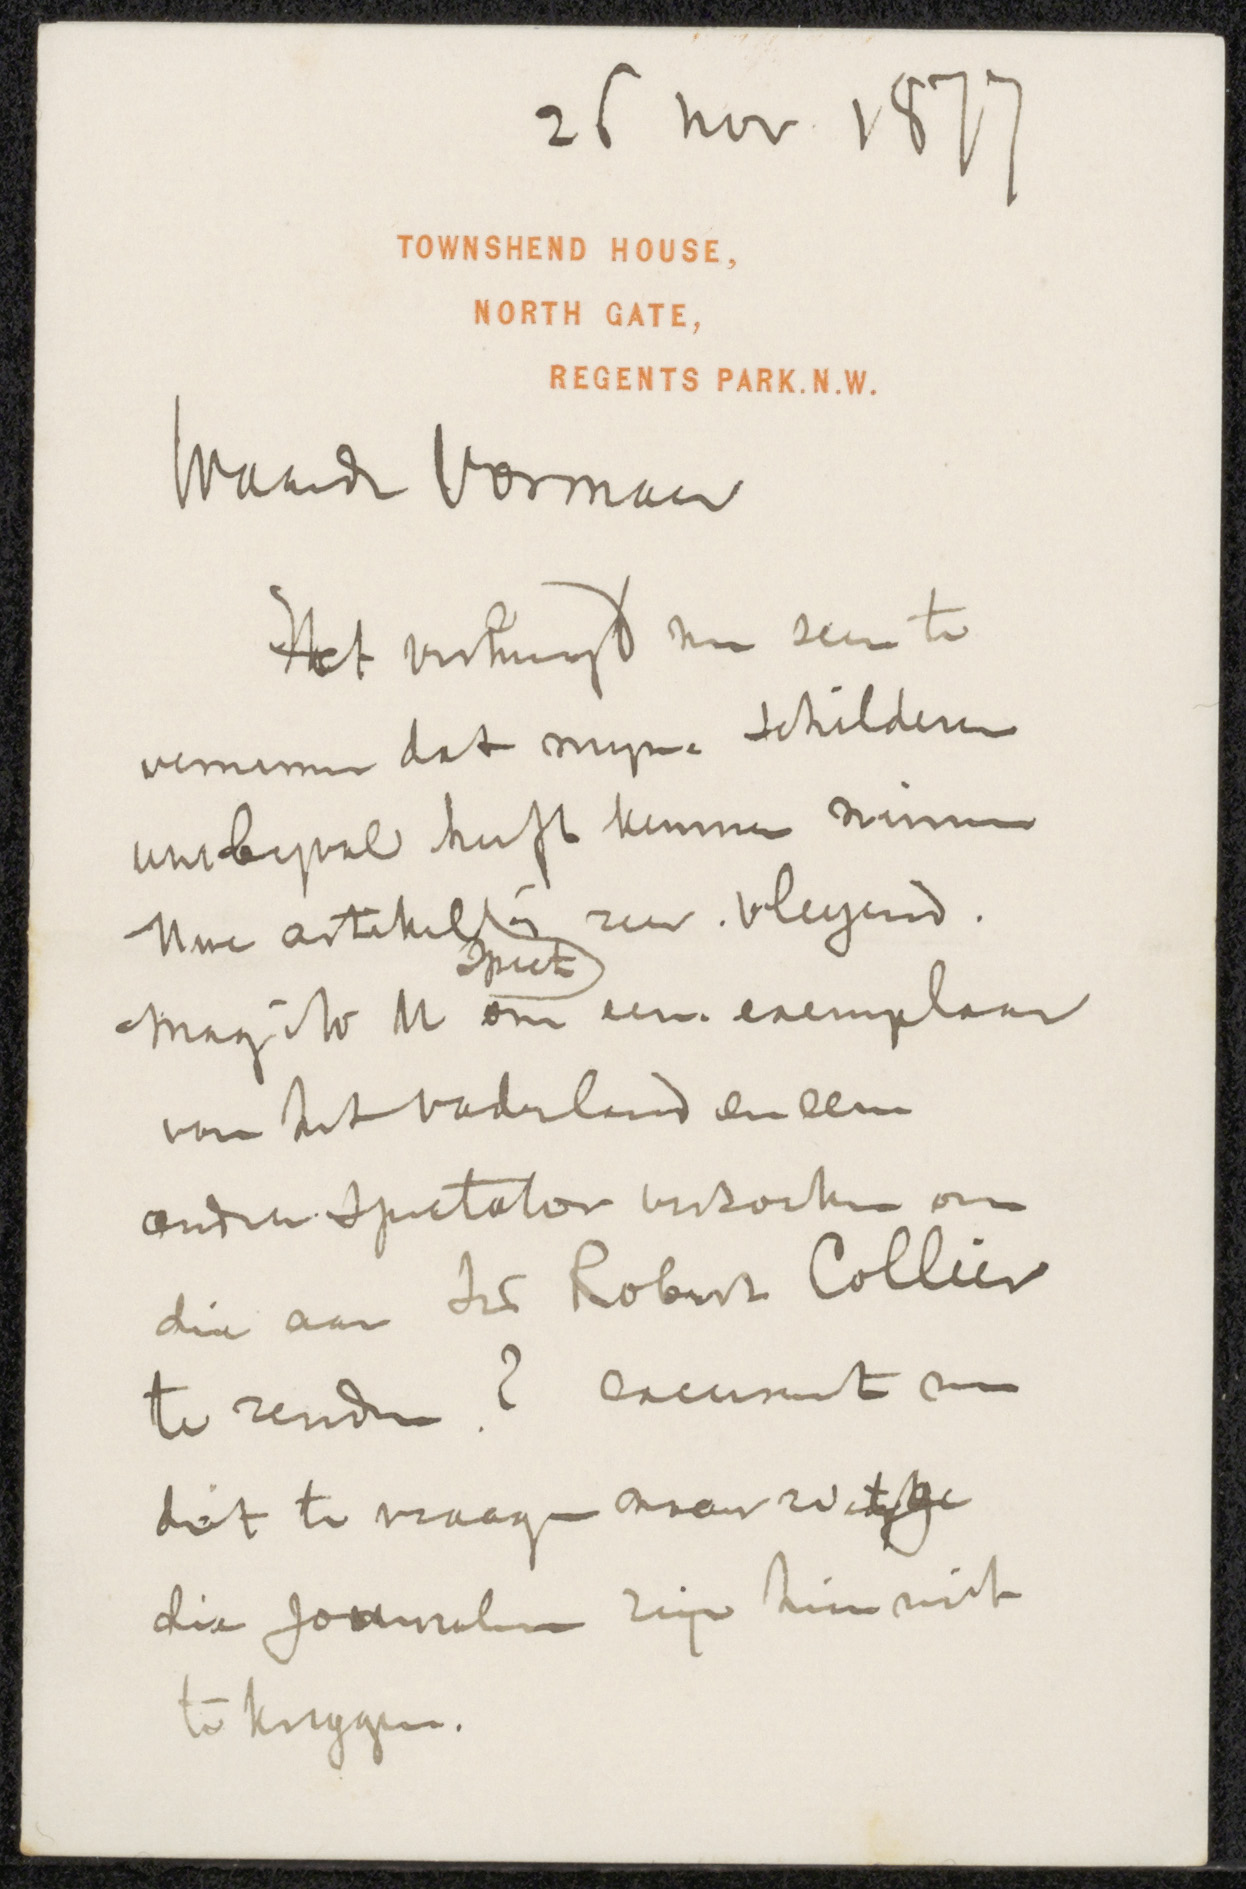 26 nov. 1877
TOWNSHEND HOUSE,
NORTH GATE,
REGENTS PARK. N.W.
Waarde Vosmaer
Het verheugd me zeer te
vernemen dat myne schilderen
uwe byval heeft kunnen winnen
Uwe artikel is zeer vleyend.
Spect
mag ik U om een exemplaar
van het vaderland en een
andere Spectator verzoeken om
die aan Sir Robert Collier
te zenden? excuseert me
dit te vraagen maar
die Journalen zijn hier niet
te krijgen.